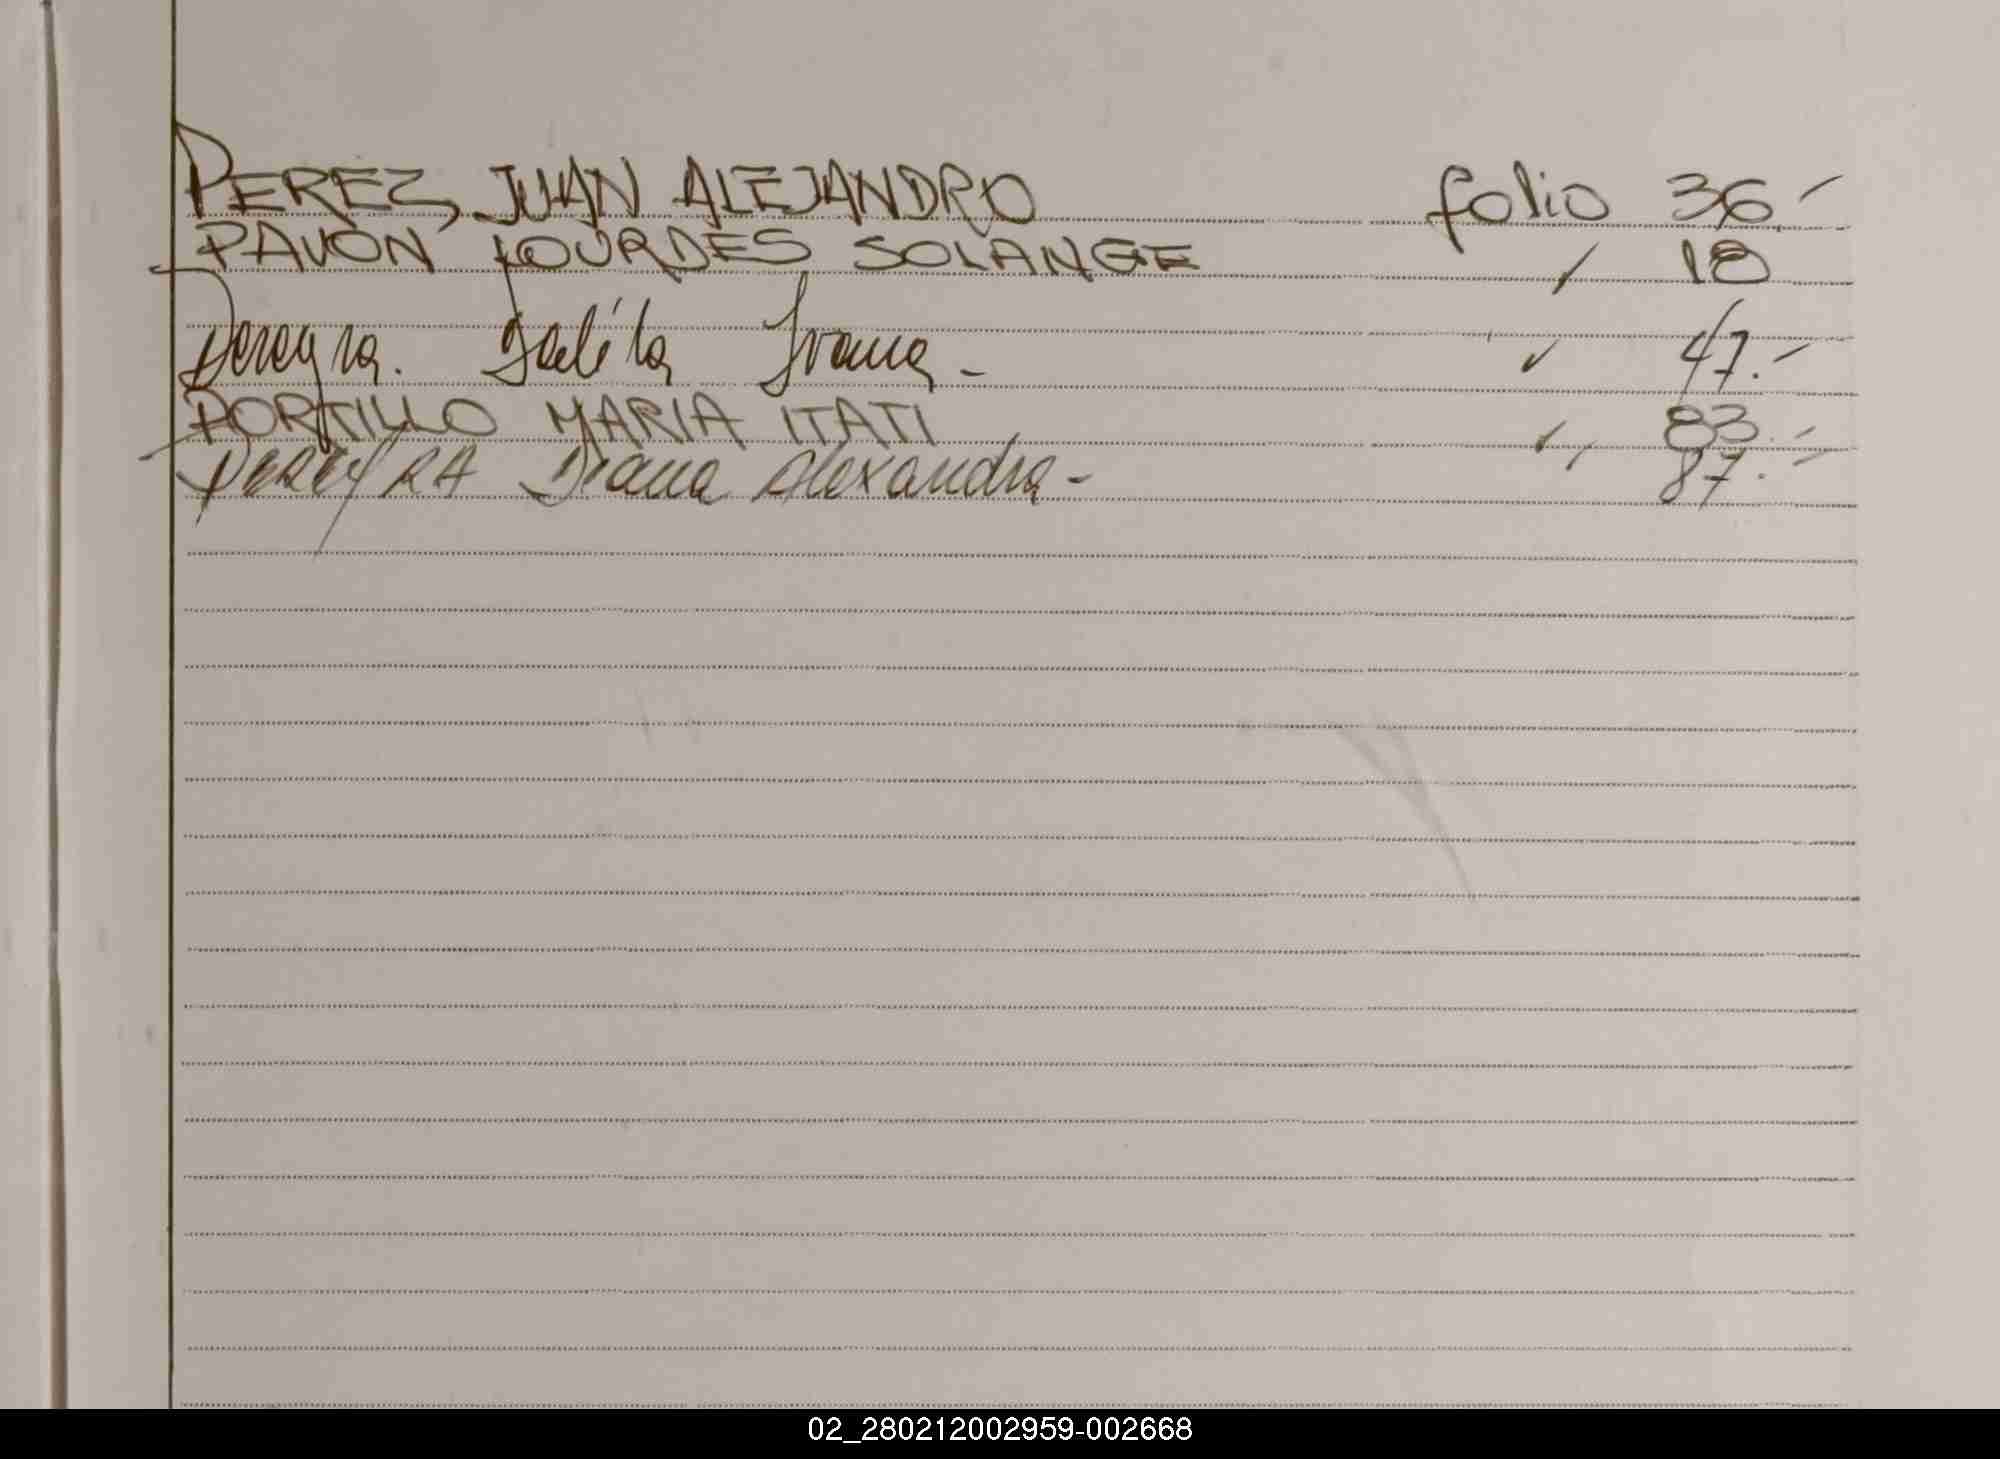 PEREZ, JUAN ALEJANDRO folio 36.-
PAVON LOURDES SOLANGE " 18
Pereyra. Dalila Ivana - " 47.-
PORTILLO MARIA ITATI " 83.-
PEREYRA Diana Alexandra - " 87.-
02_280212002959-002668